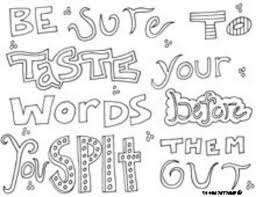 BE SURE TO
TASTE your
WORDS before
you SPIt THEM
OUT